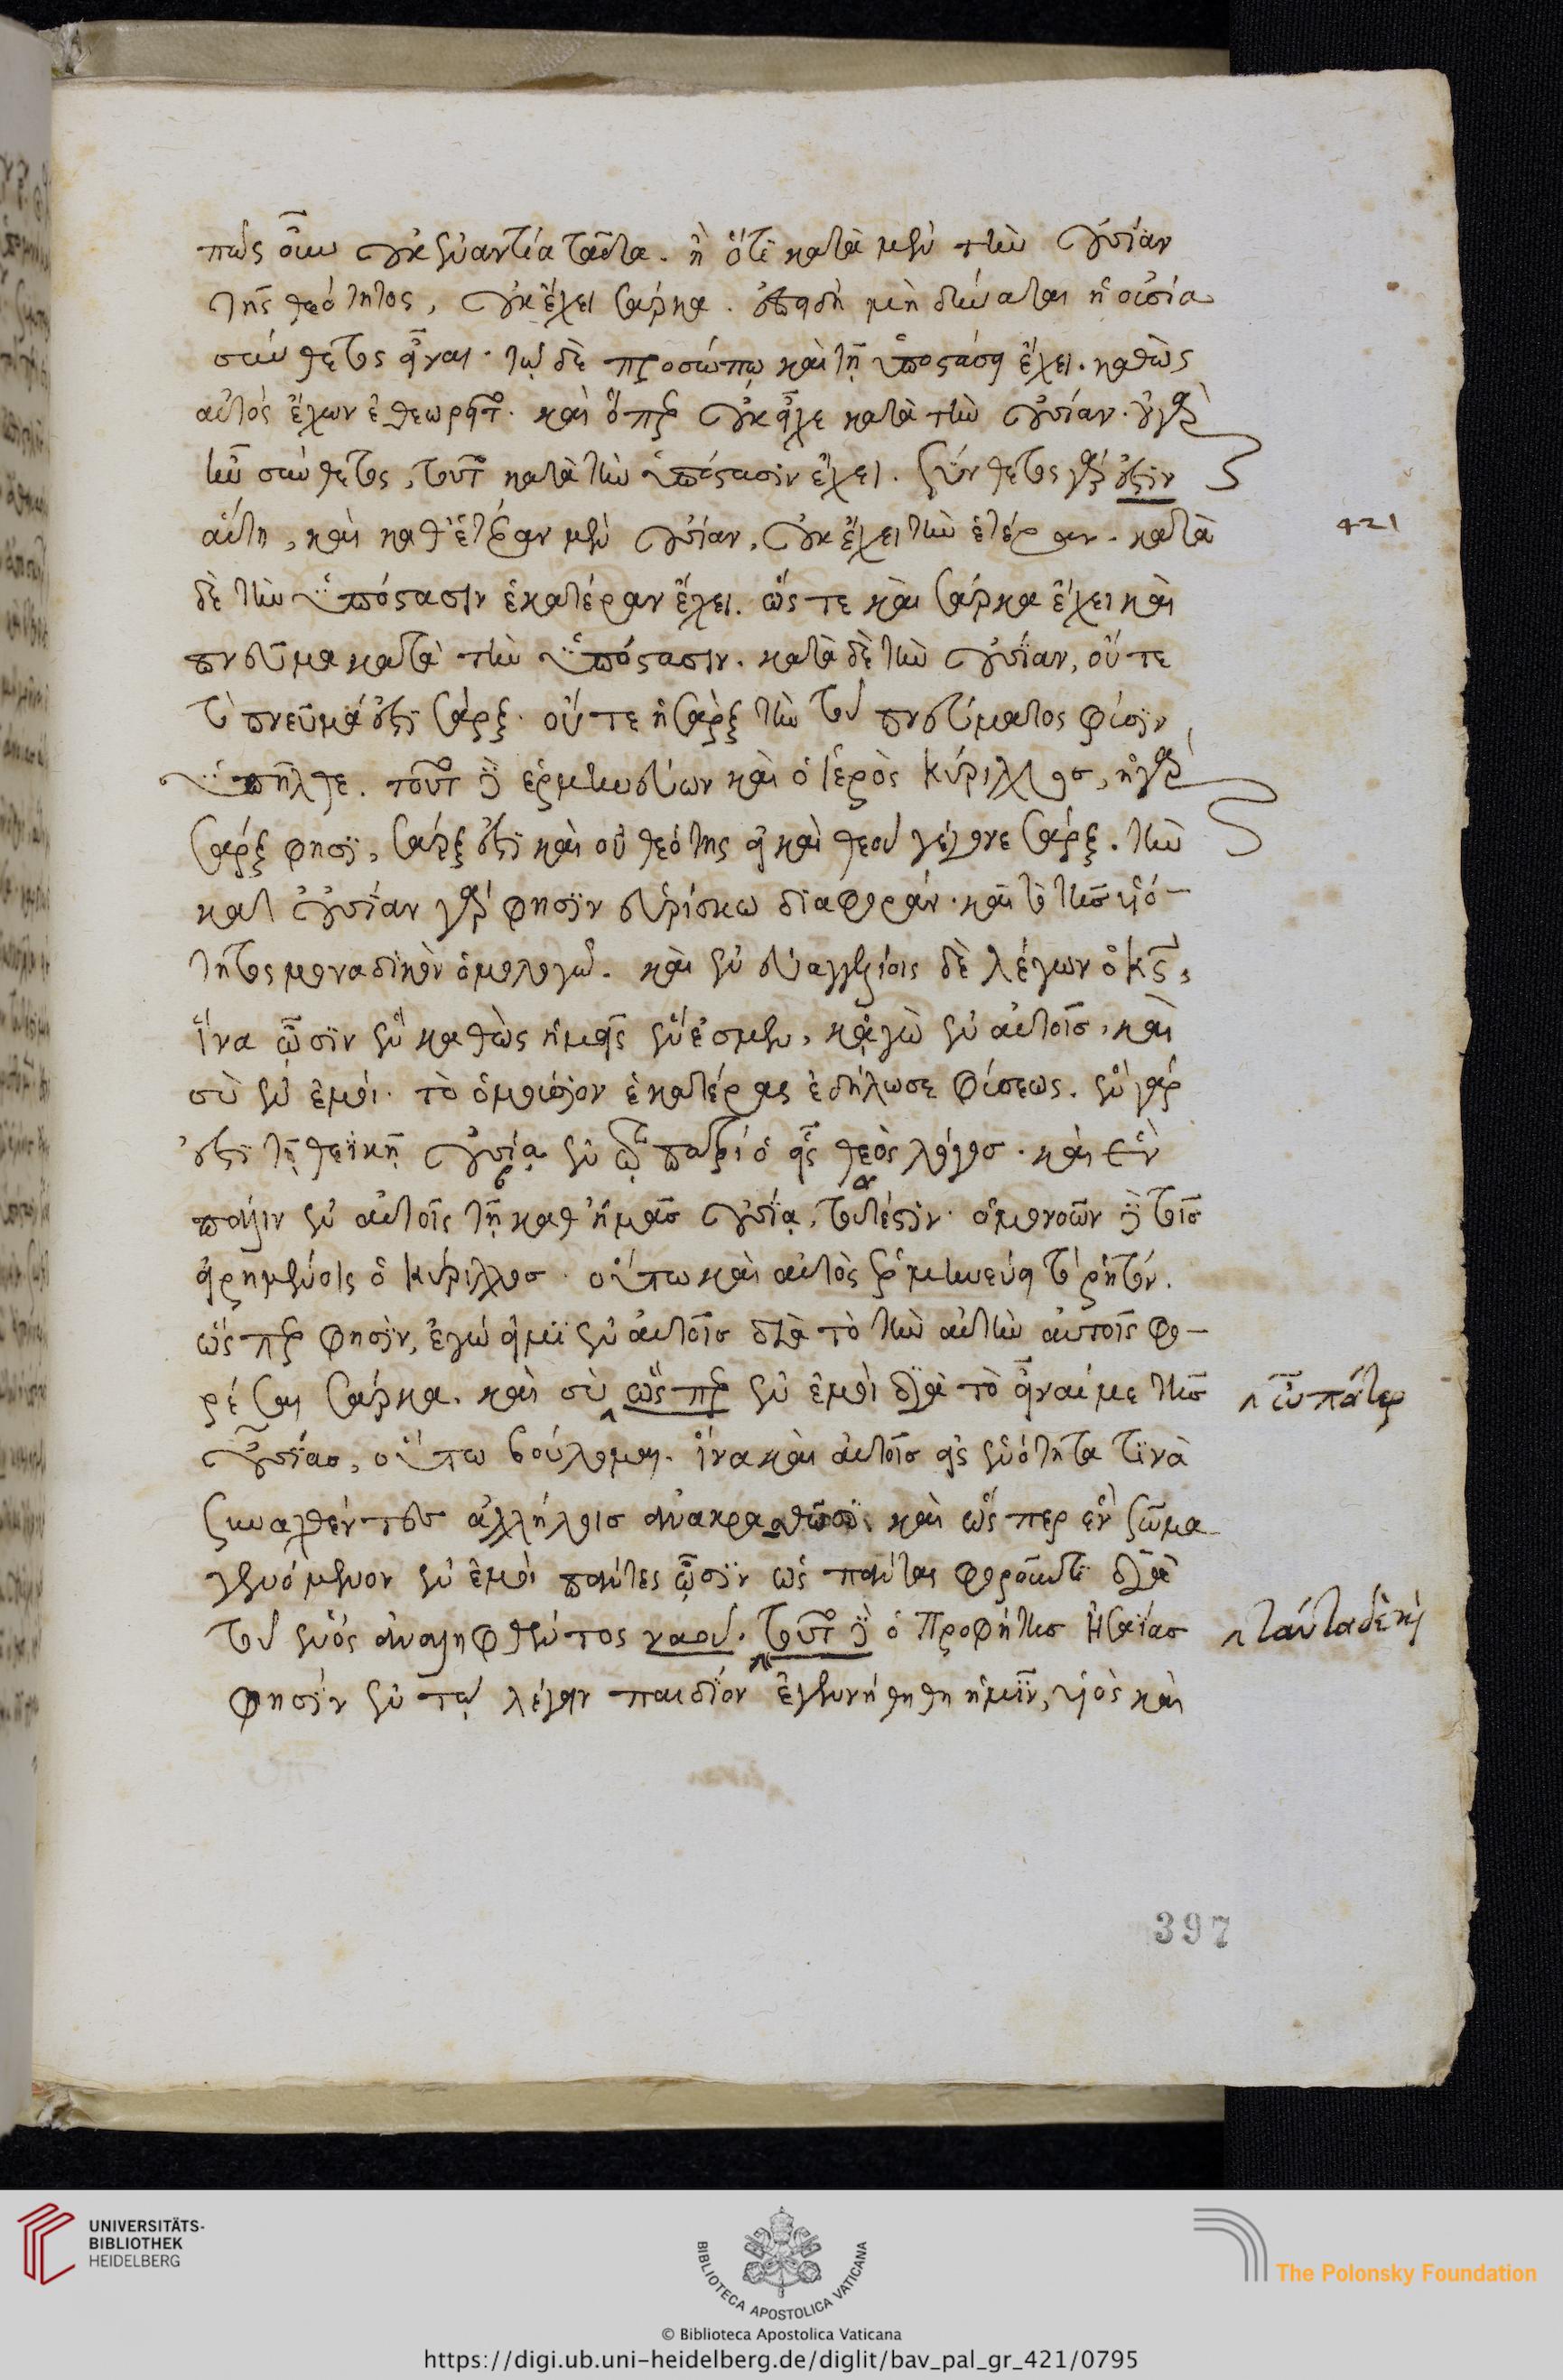 πῶς οὖν οὐκ ἐναντία ταῦτα. ἢ ὅτι κατὰ μὲν τὴν οὐσίαν
τῆς θεότητος, οὐκ ἔχει σάρκα. ἐπειδὴ μὴ δύναται ἡ οὐσία
σύνθετος εἶναι. τῷ δὲ προσώπῳ καὶ τῇ ὑποστάσει ἔχει. καθὼς
αὐτὸς ἔχων ἐθεωρεῖτο. καὶ ὅπερ οὐκ εἶχε κατὰ τὴν οὐσίαν. οὐ γὰρ
ἦν σύνθετος, τοῦτο κατὰ τὴν ὑπόστασιν ἔχει. σύνθετος γάρ ἐστιν
αὕτη, καὶ καθ' ἑτέραν μὲν οὐσίαν, οὐκ ἔχει τὴν ἑτέραν. κατὰ
δὲ τὴν ὑπόστασιν ἑκατέραν ἔχει. ὥστε καὶ σάρκα ἔχει καὶ
πνεῦμα κατὰ τὴν ὑπόστασιν. κατὰ δὲ τὴν οὐσίαν, οὔτε
τὸ πνεῦμά ἐστι σάρξ. οὔτε ἡ σὰρξ τὴν τοῦ πνεύματος φύσιν
ὑπῆλθε. τοῦτο δὲ ἑρμηνεύων καὶ ὁ ἱερὸς Κύριλλος, ἡ γὰρ
σάρξ φησι, σάρξ ἐστι καὶ οὐ θεότης εἰ καὶ θεοῦ γέγονε σάρξ. τὴν
κατ οὐσίαν γάρ φησιν εὑρίσκω διαφοράν. καὶ τὸ τῆς υἱό-
τητος μοναδικὸν ὁμολογῶ. καὶ ἐν εὐαγγελίοις δὲ λέγων ὁ κς,
ἵνα ὦσιν ἓν καθὼς ἡμεῖς ἕν ἐσμεν, κἀγὼ ἐν αὐτοῖς, καὶ
σὺ ἐν ἐμοί. τὸ ὁμοούσιον ἑκατέρας ἐδήλωσε φύσεως. ἓν γάρ
ἐστι τῇ θεϊκῇ οὐσίᾳ ἐν τῷ πατρὶ ὁ εἷς θεὸς λόγος. καὶ ἓν
πάλιν ἐν αὐτοῖς τῇ καθ' ἡμᾶς οὐσίᾳ, τουτέστιν. ὁμονοῶν δὲ τοῖς
εἰρημένοις ὁ Κύριλλος. οὕτω καὶ αὐτὸς ἑρμηνεύει τὸ ῥητόν.
ὥσπερ φησιν, ἐγώ εἰμι ἐν αὐτοῖς διὰ τὸ τὴν αὐτὴν αὐτοῖς φο-
ρέσαι σάρκα. καὶ σὺ ὥσπερ ἐν ἐμοὶ διὰ τὸ εἶναί με τῆς
οὐσίας, οὕτω βούλομαι. ἵνα καὶ αὐτοῖς εἰς ἑνότητα τινὰ
συναχθέντες ἀλλήλοις ἀνακραθῶσι. καὶ ὥσπερ ἓν σῶμα
γενόμενον ἐν ἐμοὶ πάντες ὦσιν ὡς πάντας φοροῦντι διὰ
τοῦ ἑνός ἀναληφθέντος ναοῦ. τοῦτο δὲ ὁ Προφήτης Ἠσαΐας
φησὶν ἐν τῷ λέγειν παιδίον ἐγεννήθηθη ἡμῖν, υἱὸς καὶ
ὦ πάτερ
ταῦτα δὲ καὶ
421
397
UNIVERSITÄTS-
BIBLIOTHEK
HEIDELBERG
BIBLIOTECA APOSTOLICA VATICANA
© Biblioteca Apostolica Vaticana
The Polonsky Foundation
https://digi.ub.uni-heidelberg.de/diglit/bav_pal_gr_421/0795